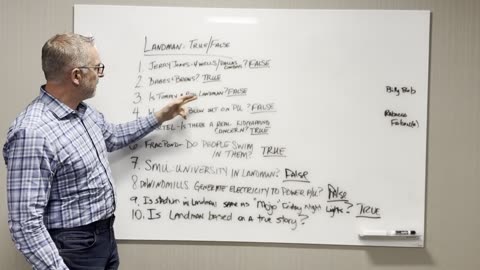 LANDMAN: TRUE/FALSE
1. JERRY JONES - WELLS/DALLAS COWBOYS? FALSE
2. BABES & BREWS? TRUE
3 IS TOMMY LANDMAN? FALSE
4 BEEN HIT ON PU? FALSE
IS THERE A REAL KIDNAPPING
CONCERN? TRUE
6 FRAC POND - DO PEOPLE SWIM
IN THEM? TRUE
7. SMU UNIVERSITY IN LANDMAN? FALSE
8 WINDMILLS GENERATE ELECTRICITY TO POWER PU? FALSE
9. Is stadium in Landman same as "Mojo" Friday Night Lights? TRUE
10. Is Landman based on a true story?
Billy Bob
Rebecca